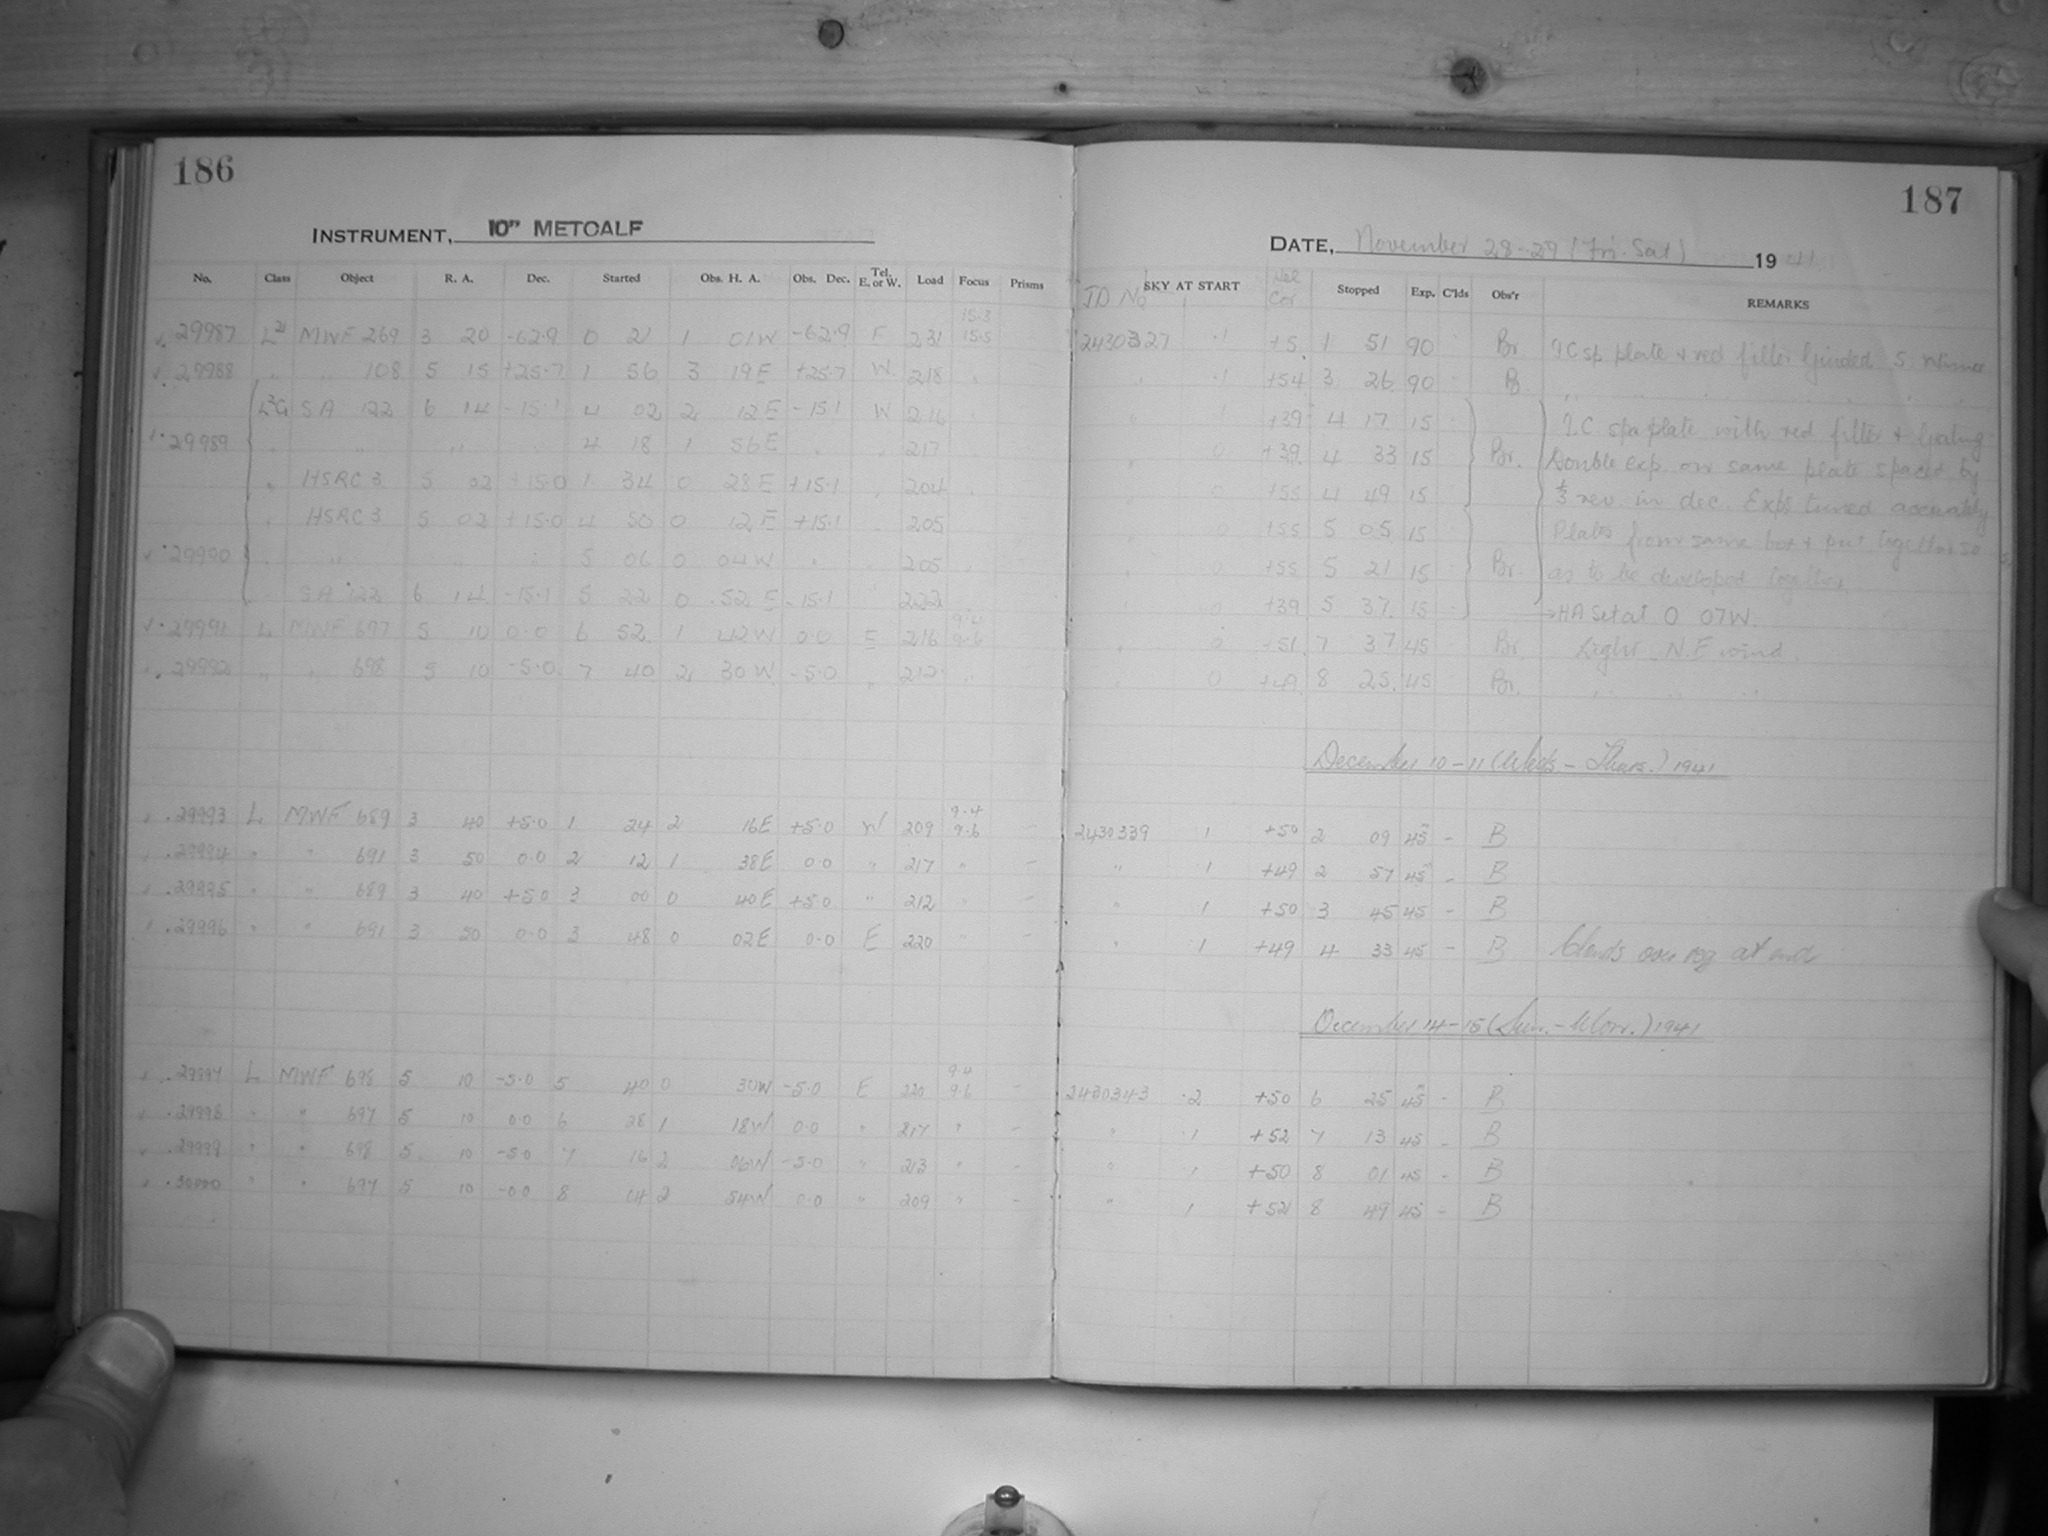 186
INSTRUMENT, 10" METCALF
No. Class Object R. A. Dec. Started Obs. H. A. Obs. Dec. Tel. E. or W. Load Focus Prisms
29987 MWF 269 3 20 -62.9 0 21 1 01W -62.9 E 231 15.3 15.5
29988 " " 108 5 15 +25.7 1 56 3 19E +25.7 W 218 "
L²G SA 122 6 14 -15.1 4 02 2 12E -15.1 W 216
29989 " " " " 4 18 1 56E " " 217
" HSRC 3 5 02 +15.0 1 34 0 28E +15.1 " 204
" HSRC 3 5 02 +15.0 4 50 0 12E +15.1 " 205
29990 " " " 5 06 0 04W " " 205
SA 122 6 14 -15.1 5 22 0 52E -15.1 " 222
29991 L MWF 697 5 10 0.0 6 52 1 42W 0.0 E 216 9.4 9.6
29992 " " 698 5 10 -5.0 7 40 2 30W -5.0 " 212 "
29993 L MWF 689 3 40 +5.0 1 24 2 16E +5.0 W 209 9.4 9.6 -
29994 " " 691 3 50 0.0 2 12 1 38E 0.0 " 217 " -
29995 " " 689 3 40 +5.0 3 00 0 40E +5.0 " 212 " -
29996 " " 691 3 50 0.0 3 48 0 02E 0.0 E 220 " -
29997 L MWF 698 5 10 -5.0 5 40 0 30W -5.0 E 220 9.4 9.6 -
29998 " " 697 5 10 0.0 6 28 1 18W 0.0 " 217 " -
29999 " " 698 5 10 -5.0 7 16 2 06W -5.0 " 213 " -
30000 " " 697 5 10 -0.0 8 04 2 54W 0.0 " 209 " -
187
DATE, November 28-29 (Fri. Sat) 1941
JD No SKY AT START Cor Stopped Exp. C'lds Obs'r REMARKS
2430327 .1 +5 1 51 90 Br I.C sp. plate + red filter Guided S.
" .1 +54 3 26 90 B.
" 1 +39 4 17 15 I.C spa plate with red filter + Grating
" 0 +39 4 33 15 Br. Double exp. on same plate spaced by
" 0 +55 4 49 15 ⅓ rev. in dec. Exps timed accurately
" 0 +55 5 05 15 Plates from same box + put together so
" 0 +55 5 21 15 Br. as to be developed together
" 0 +39 5 37 15 →HA Set at 0 07W.
" 0 -51 7 37 45 Br. Light N.E wind.
" 0 +49 8 25 45 Br. " " "
December 10-11 (Weds - Thurs.) 1941
2430339 1 +50 2 09 45 - B
" 1 +49 2 57 45 - B
" 1 +50 3 45 45 - B
" 1 +49 4 33 45 - B Clouds over reg at end
December 14-15 (Sun. - Mon.) 1941
2430343 .2 +50 6 25 45 - B
" .1 +52 7 13 45 - B
" 1 +50 8 01 45 - B
" 1 +52 8 49 45 - B